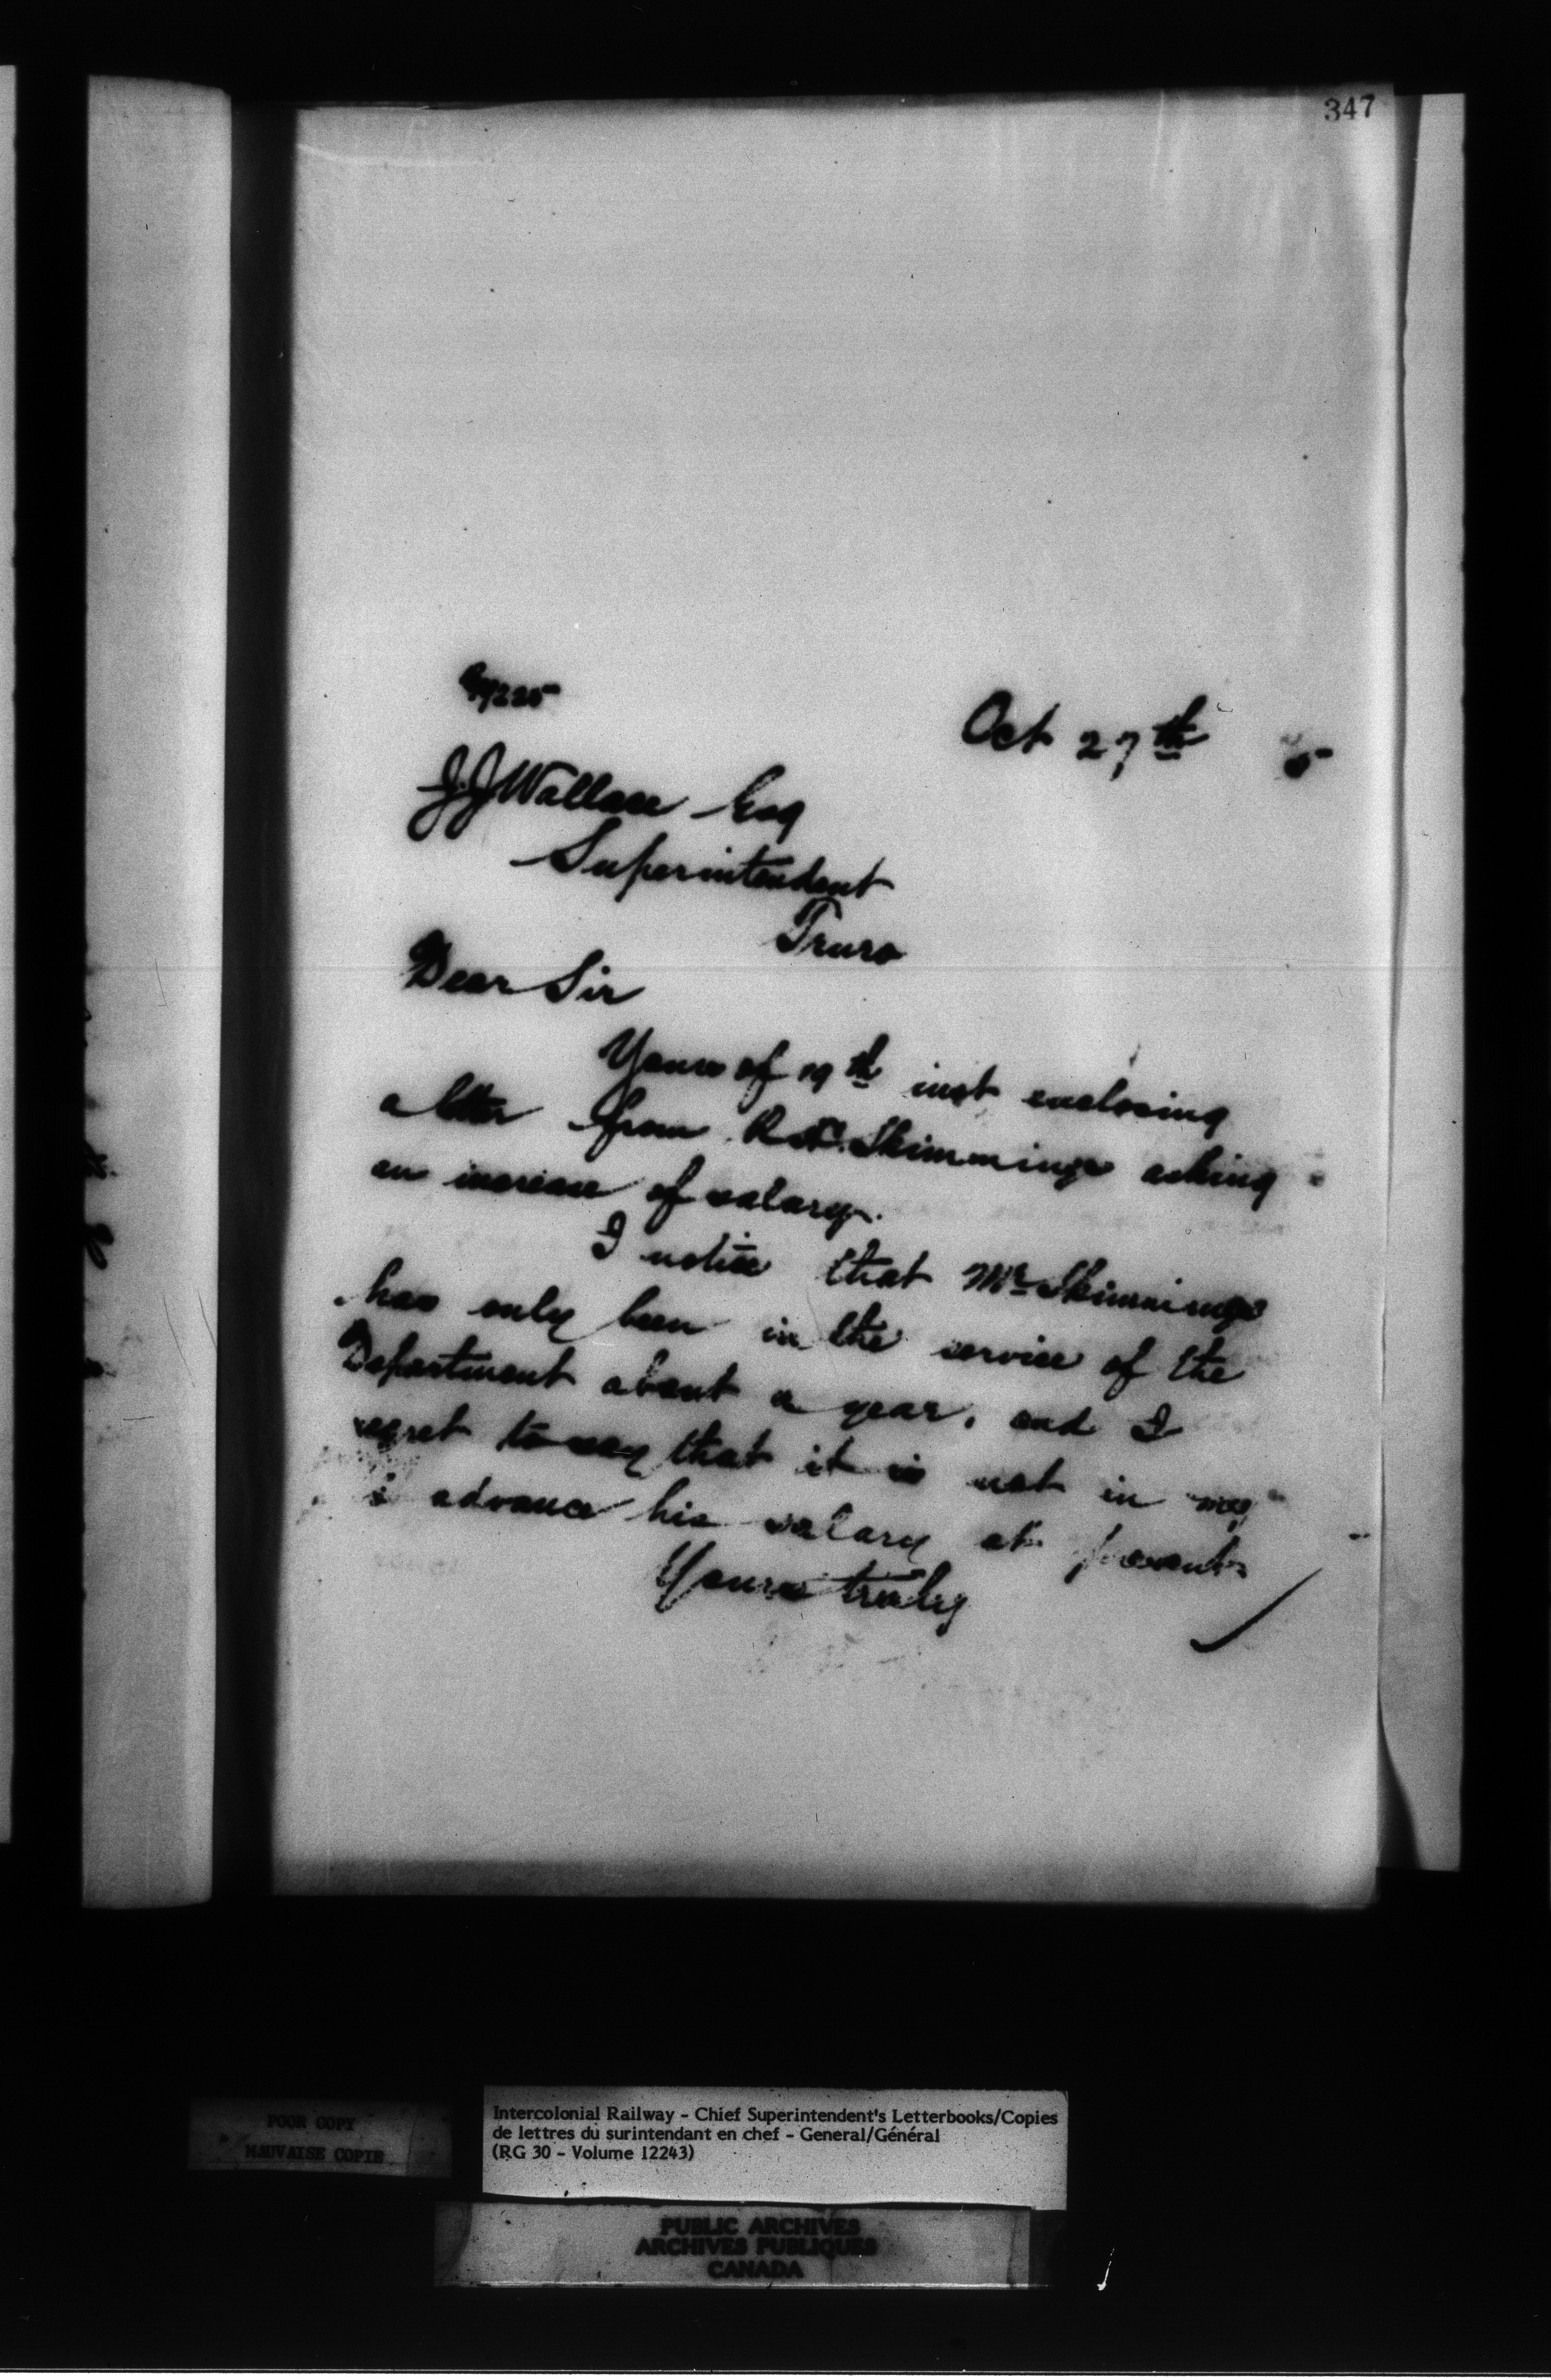 347
Oct 27th 5
J.J Wallace Esq
Superintendent
Truro
Dear Sir
Yours of 19th inst enclosing
a letter from Skimmings asking
an increase of salary.
I notice that Mr Skimmings
has only been in the service of the
Department about a year, and I
regret to say that it is not in my
advance his salary at present
Yours truly
POOR COPY
MAUVAISE COPIE
Intercolonial Railway - Chief Superintendent's Letterbooks/Copies
de lettres du surintendant en chef - General/Général
(RG 30 - Volume 12243)
PUBLIC ARCHIVES
ARCHIVES PUBLIQUES
CANADA